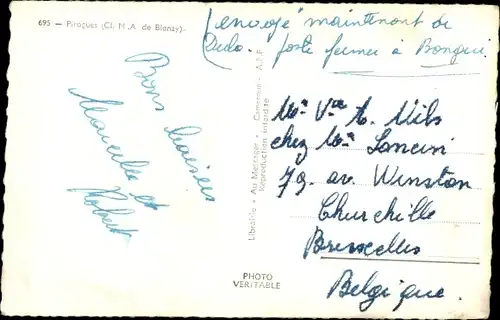 695 — Pirogues (Cl. M.A. de Blonay).
envoyé maintenant de
Dido. poste fermée à Bangui.
Bons baisers
Marcelle et
Robert
Librairie « Au Messager » Cameroun - A.E.F
Reproduction interdite
PHOTO
VERITABLE
Mme Vve A. Mils
chez Mme Lancini
79 av. Winston
Churchille
Bruxelles
Belgique.